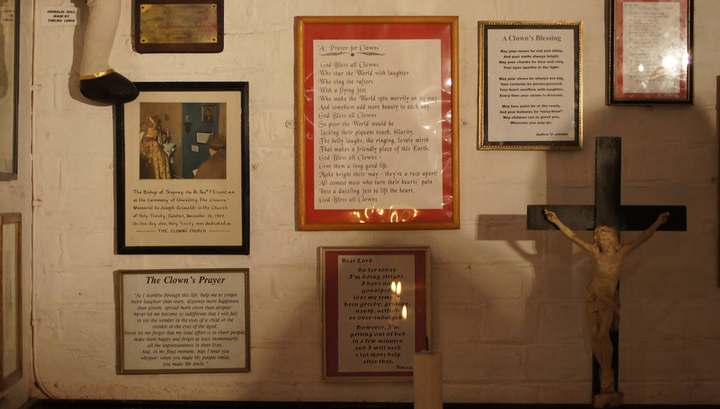 GRIMALDI DOLL
MADE BY
THELMA LEWIS
'A Prayer for Clowns'
God Bless all Clowns
Who star the World with laughter
Who ring the rafters
With a flying jest,
Who make the World spin merrily on its way
And somehow add more beauty to each day.
God Bless all Clowns
So poor the World would be
Lacking their piquant touch, hilarity,
The belly laughs, the ringing, lovely mirth
That makes a friendly place of this Earth.
God Bless all Clowns -
Give them a long good life,
Make bright their way - they're a race apart!
All comest most who turn their hearts' pain
Into a dazzling jest to lift the heart.
God Bless all Clowns
A Clown's Blessing
May your noses be red and shiny,
And your smile always bright.
May your cheeks be nice and rosy,
Your eyes sparkle in the light.
May your shoes be always too big,
Your costume be
Your heart overflow with laughter,
Every time your clown is dressed.
May face paint be at the ready,
And your balloons be
May children come to greet you,
Wherever you may go.
The Bishop of Stepney the Rt. Rev.
at the Ceremony of Unveiling The Clowns'
Memorial to Joseph Grimaldi in the Church
of Holy Trinity, Dalston, November 1959.
On this day also, Holy Trinity was dedicated as
THE CLOWNS' CHURCH
The Clown's Prayer
"As I stumble through this life, help me to create
more laughter than tears, dispense more happiness
than gloom, spread more cheer than despair.
Never let me become so indifferent that I will fail
to see the wonder in the eyes of a child or the
twinkle in the eyes of the aged.
Never let me forget that my total effort is to cheer people,
make them happy and forget at least momentarily
all the unpleasantness in their lives.
And, in my final moment, may I hear you
whisper: when you made My people smile,
you made Me smile."
Dear Lord
So far today
I'm doing alright.
I have not
gossiped,
lost my temper,
been greedy, grumpy,
nasty, selfish
or over-indulgent.
However, I'm
getting out of bed
in a few minutes
and I will need
a lot more help
after that.